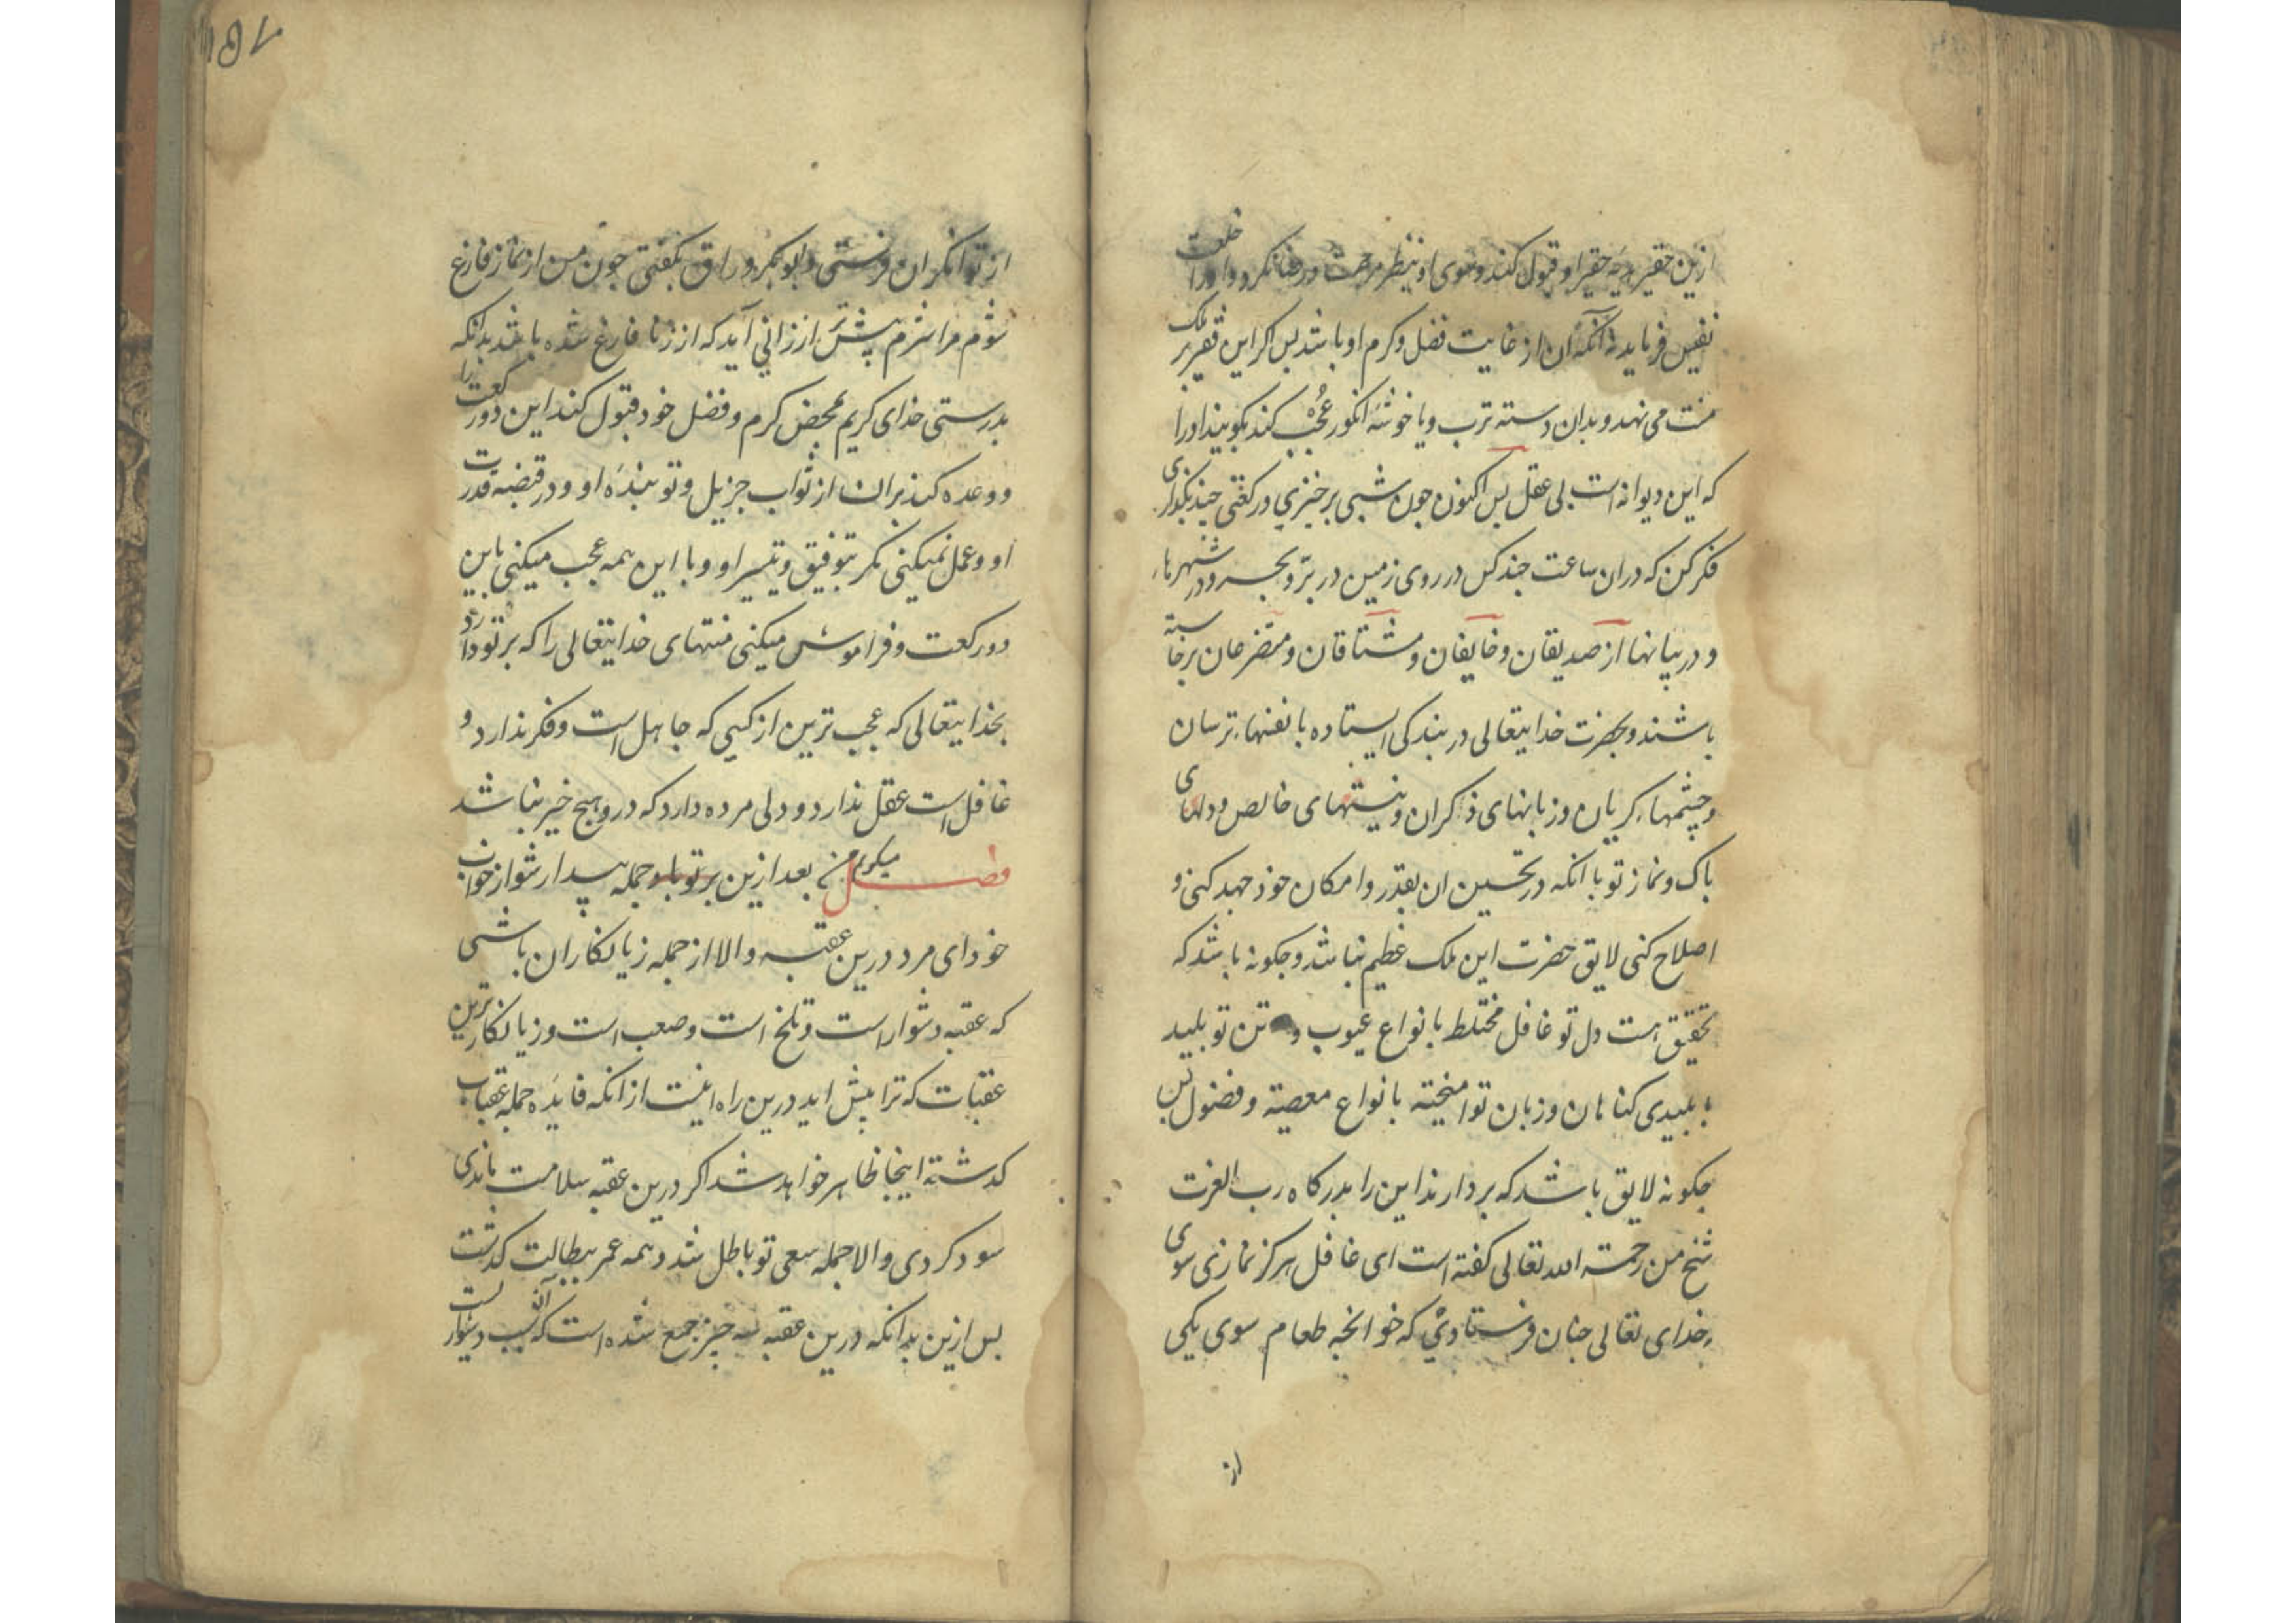 ازین حقیر هدیه حقیر او قبول کند و سوی او بنظر مرحمت و رضا نکرد و او را خلعت
نفیس فرماید نه آنکه آن از غایت فضل و کرم او باشد بس اکر این فقیر بر ملک
منت می نهد و بدان دسته ترب و یا خوشه انکور عجب کند بکویند او را
که این دیوانه است بی عقل بس اکنون جون شبی برخیزی و رکعتی جند بکذاری
فکر کن که دران ساعت جند کس در روی زمین در بر و بحر و در شهرها
و در بیابانها از صدیقان و خایفان و مشتاقان و متضرعان برخاسته
باشند و بحضرت خدایتعالی در بندکی ایستاده با نفسهاء ترسان
و چشمهاء کریان و زبانهای ذکران و نیتهای خالص و دلهای
باک و نماز تو با انکه در تحسین ان بقدر و امکان خوذ جهد کنی و
اصلاح کنی لایق حضرت این ملک عظیم نباشد و جکونه باشد که
تحقیق هست دل تو غافل مختلط بانواع عیوب و تن تو بلید
ببلیدی کناهان و زبان تو امیخته بانواع معصیة و فضول بس
جکونه لایق باشد که بردارند این را بدرکاه رب العزت
شیخ من رحمة الله تعالی کفته است ای غافل هرکز نمازی سوی
خدای تعالی جنان فرستادی که خوانجه طعام سوی یکی
از
از توانکران فرستی و ابو بکر وراق بکفتی جون من از نماز فارغ
شوم مرا شرم بیشتر از زانی آید که از زنا فارغ شده باشد بدانکه
بدرستی خدای کریم بمحض کرم و فضل خود قبول کند این دو رکعت را
و وعده کند بران از ثواب جزیل و تو بنده او و در قبضه قدرت
او و عمل نمیکنی مکر بتوفیق و تیسیر او و با این همه عجب میکنی باین
دو رکعت و فراموش میکنی منتهای خدایتعالی را که بر تو دارد
بخذایتعالی که عجب ترین از کسی که جاهل است و فکر نذارد و
غافل است عقل نذارد و دلی مرده دارد که درو هیج خیر نباشد
فصل میکویم من بعد ازین بر تو باد جمله بیدار شو از خواب
خود ای مرد درین عقبه والا از جمله زیانکاران باشی
که عقبه دشوار است و تلخ است و صعب است و زیانکارترین
عقبات که ترا بیش اید درین راه اینست از انکه فایده جمله عقباب
کدشته اینجا ظاهر خواهد شد اکر درین عقبه سلامت ماندی
سود کردی والا جمله سعی تو باطل شد و همه عمر ببطالت کدشت
بس ازین بدانکه درین عقبه سه جیز جمع شده است که بسبب آن دشوار است